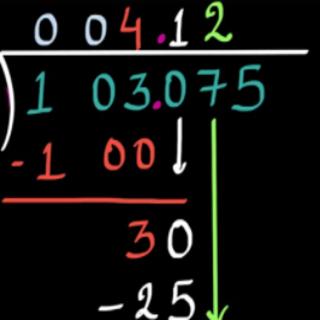 0 0 4.1 2
1 03.075
-1 00
30
-25